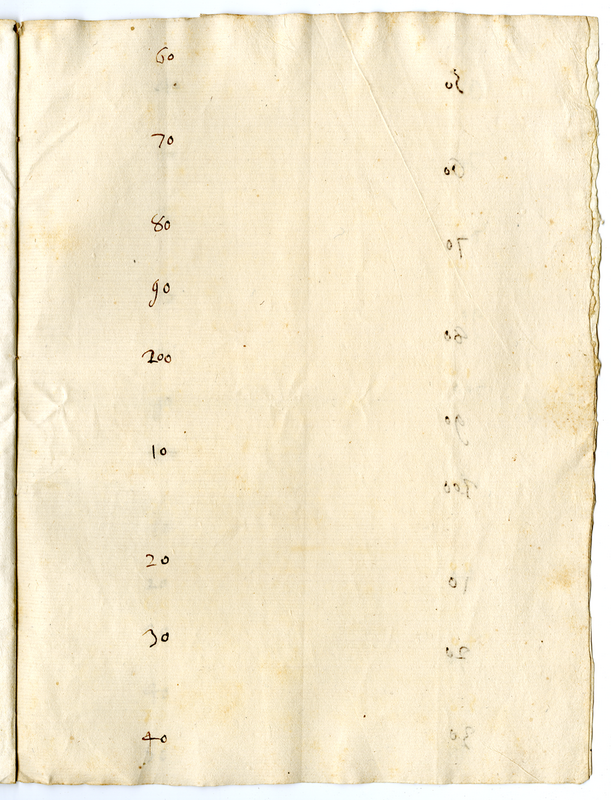 60
70
80
90
200
10
20
30
40
60
70
80
90
300
10
20
30